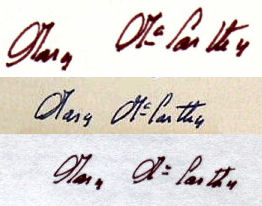 Mary McCarthy
Mary McCarthy
Mary McCarthy